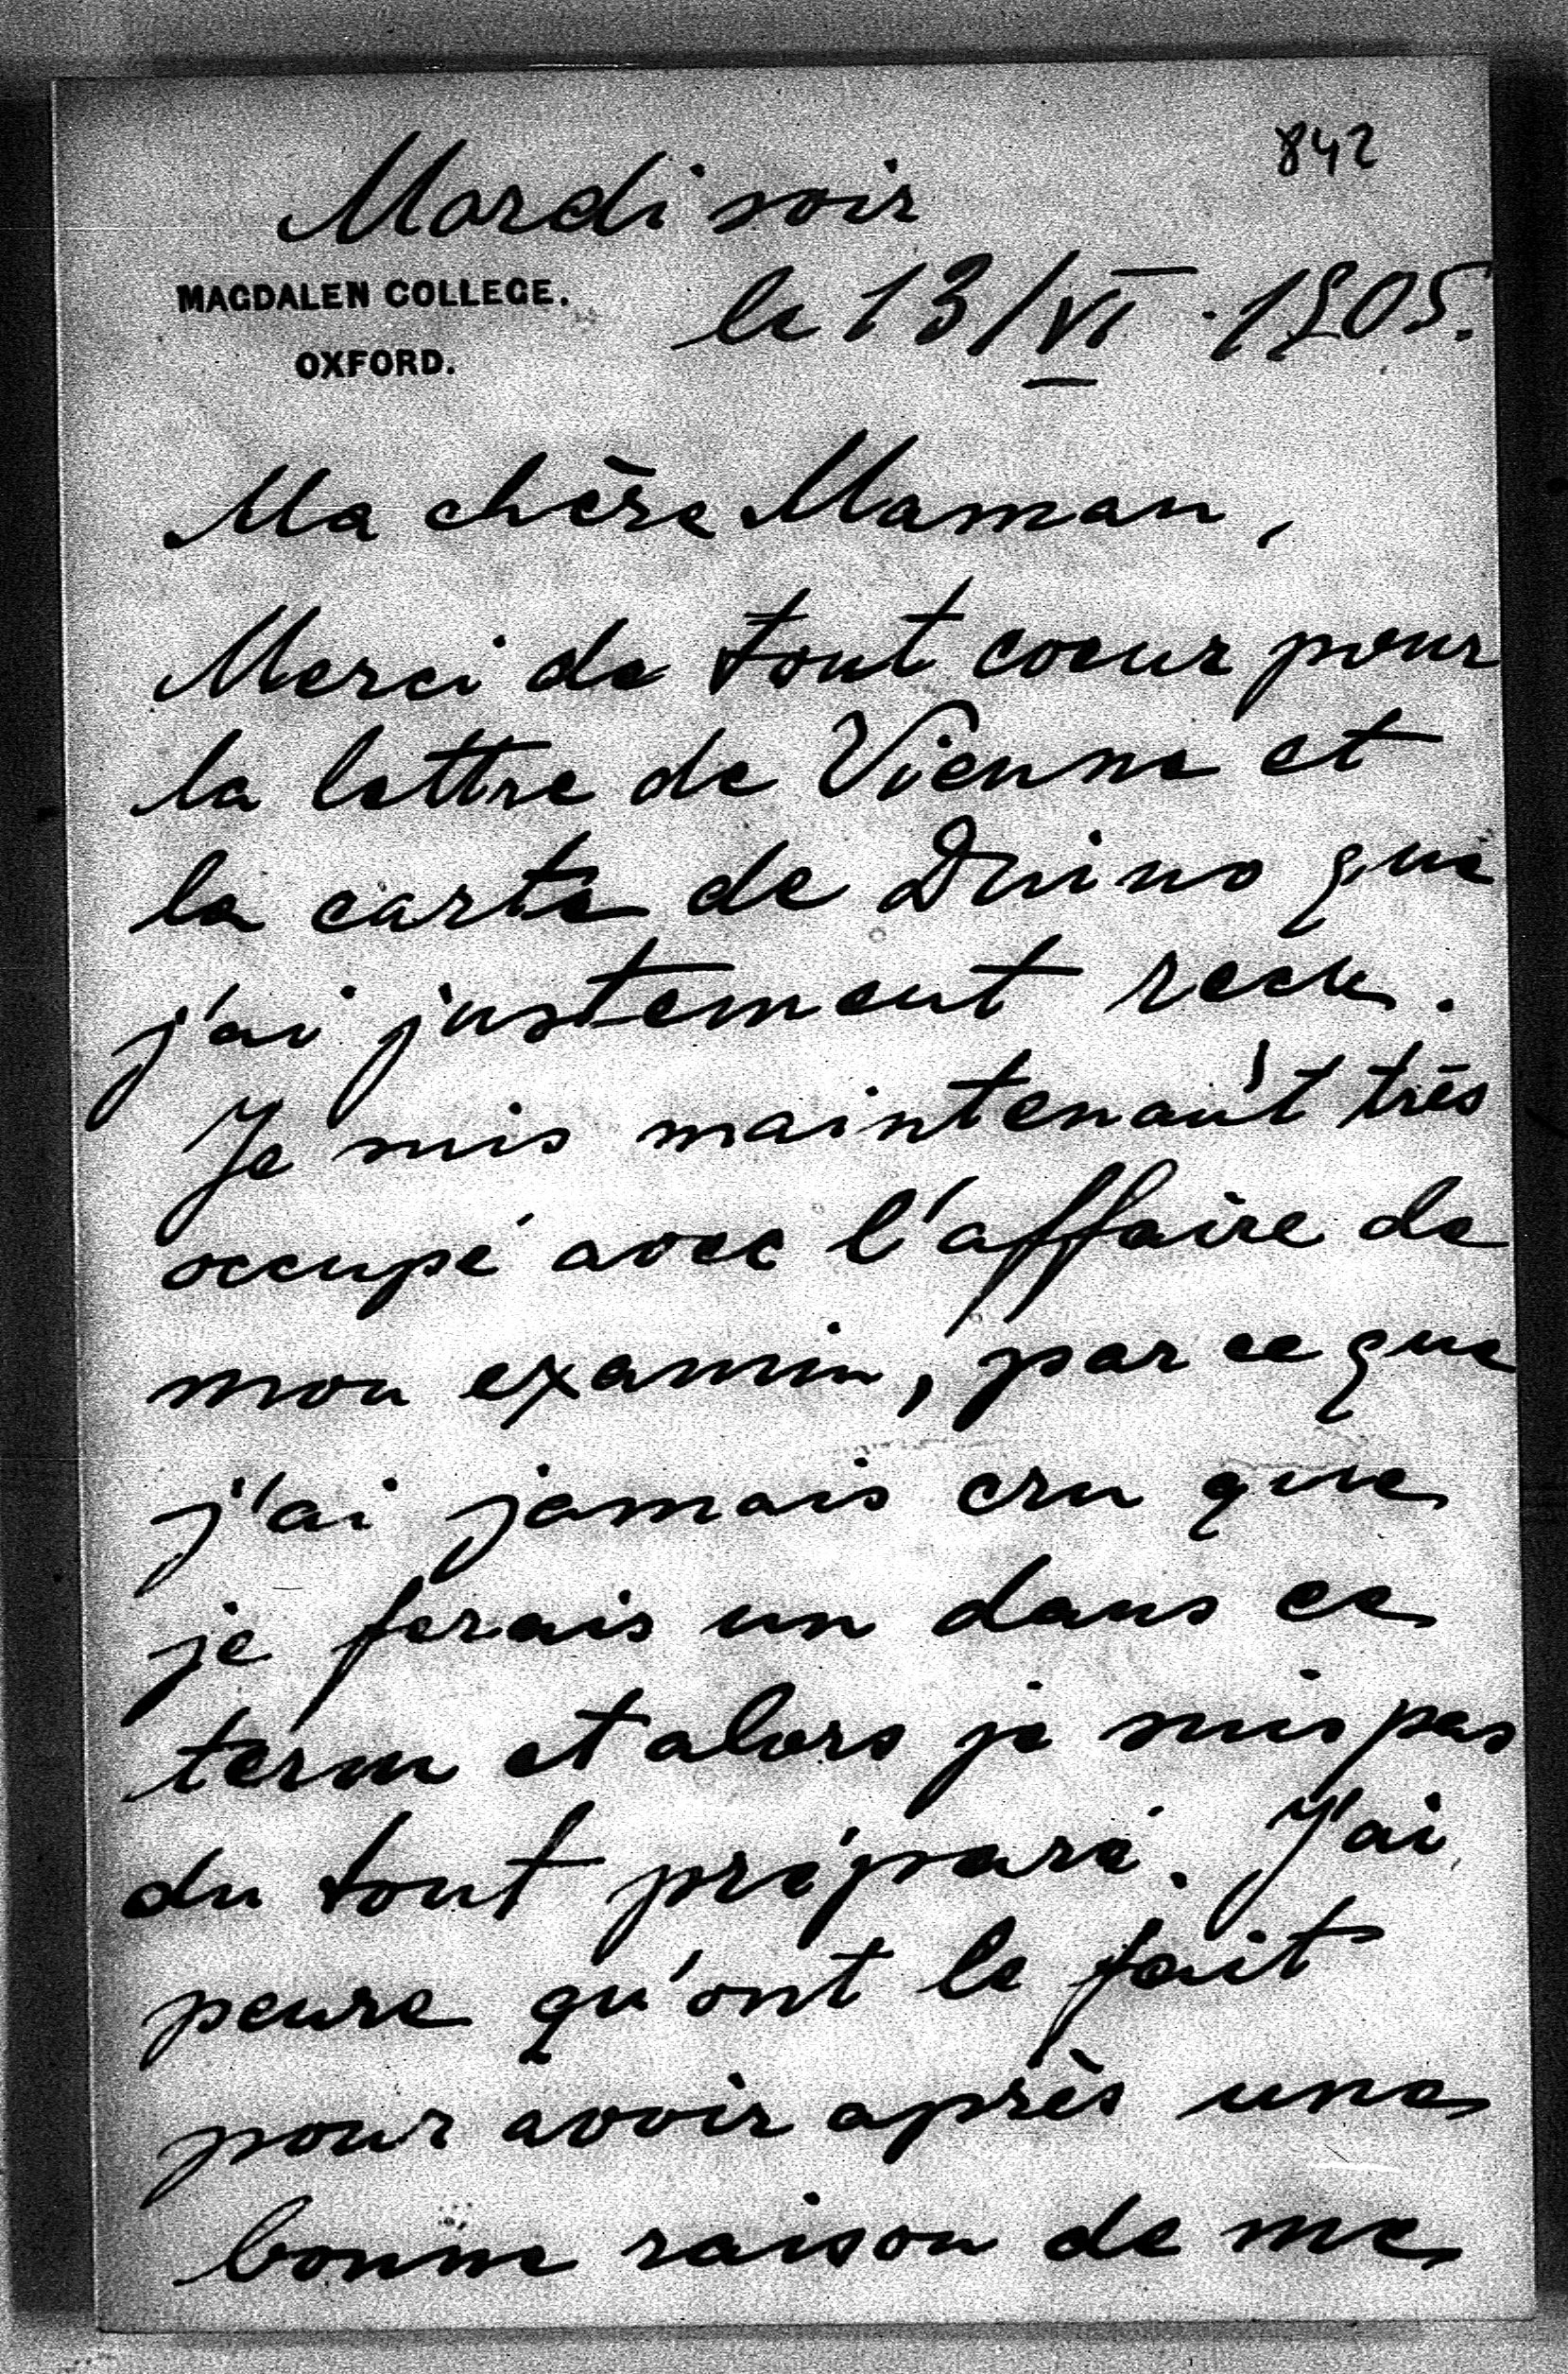 842
Mardi soir
MAGDALEN COLLEGE.
OXFORD.
le 13/VI. 1905.
Ma chère Maman,
Merci de tout coeur pour
la lettre de Vienne et
la carte de Duino que
j'ai justement recu.
Je suis maintenant très
occupé avec l'affaire de
mon examin, par ce que
j'ai jamais cru que
je ferais un dans ce
term et alors je suis pas
du tout préparé. J'ai
peure qu'ont le fait
pour avoir après une
bonne raison de me